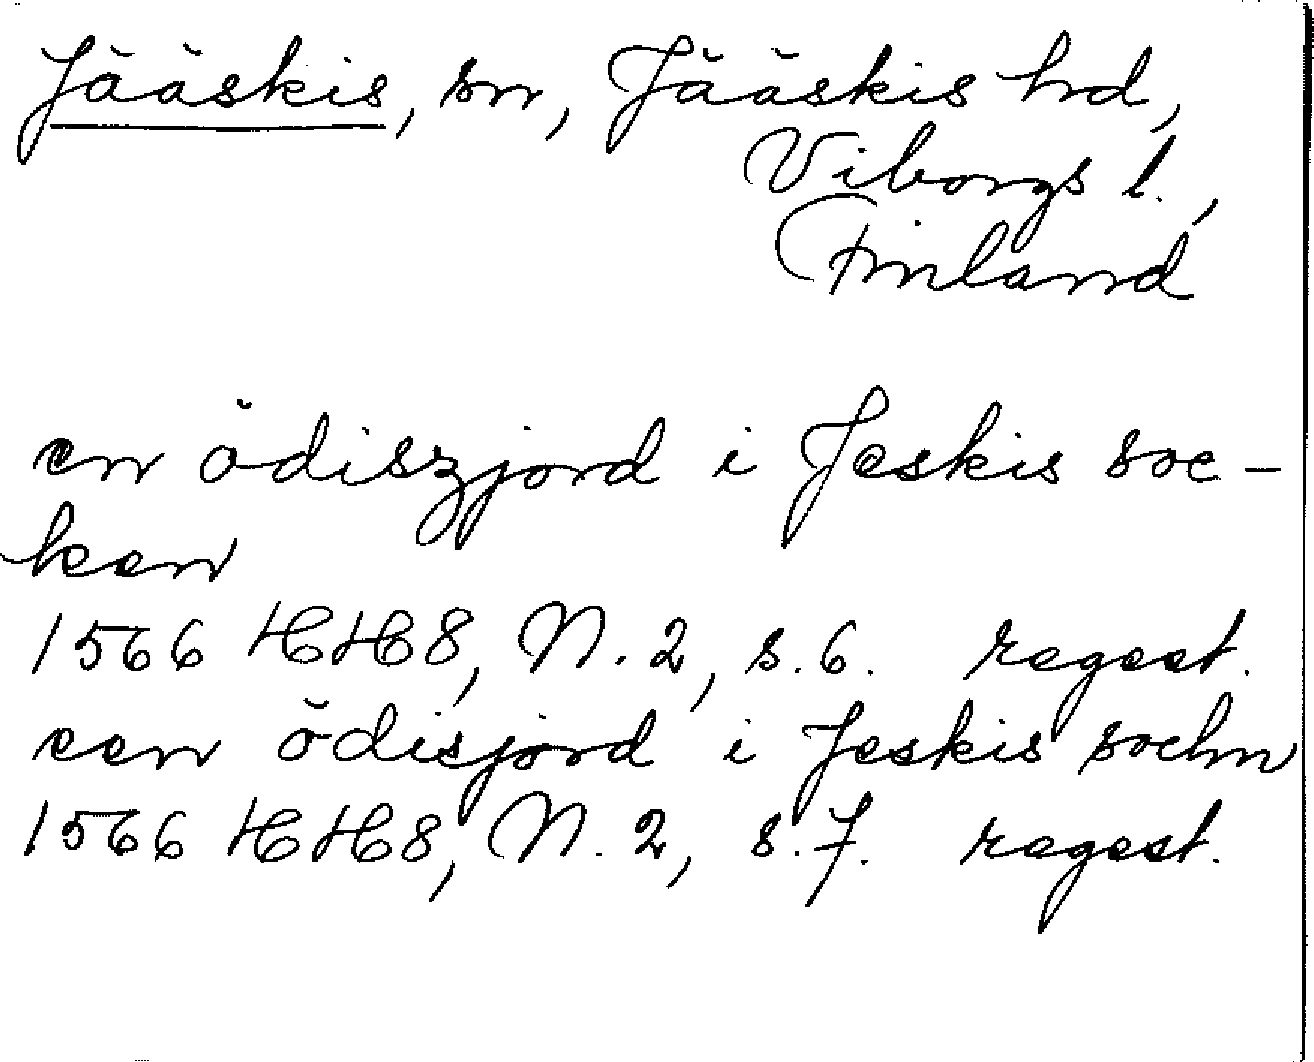 Jääskis, sn, Jääskis hd,
Viborgs l.,
Finland
en ödiszjord i Jeskis soc-
ken
1566 HH8, N. 2, s. 6. regest.
een ödisjord i Jeskis sochn
1566 HH8, N. 2, s. 7. regest.